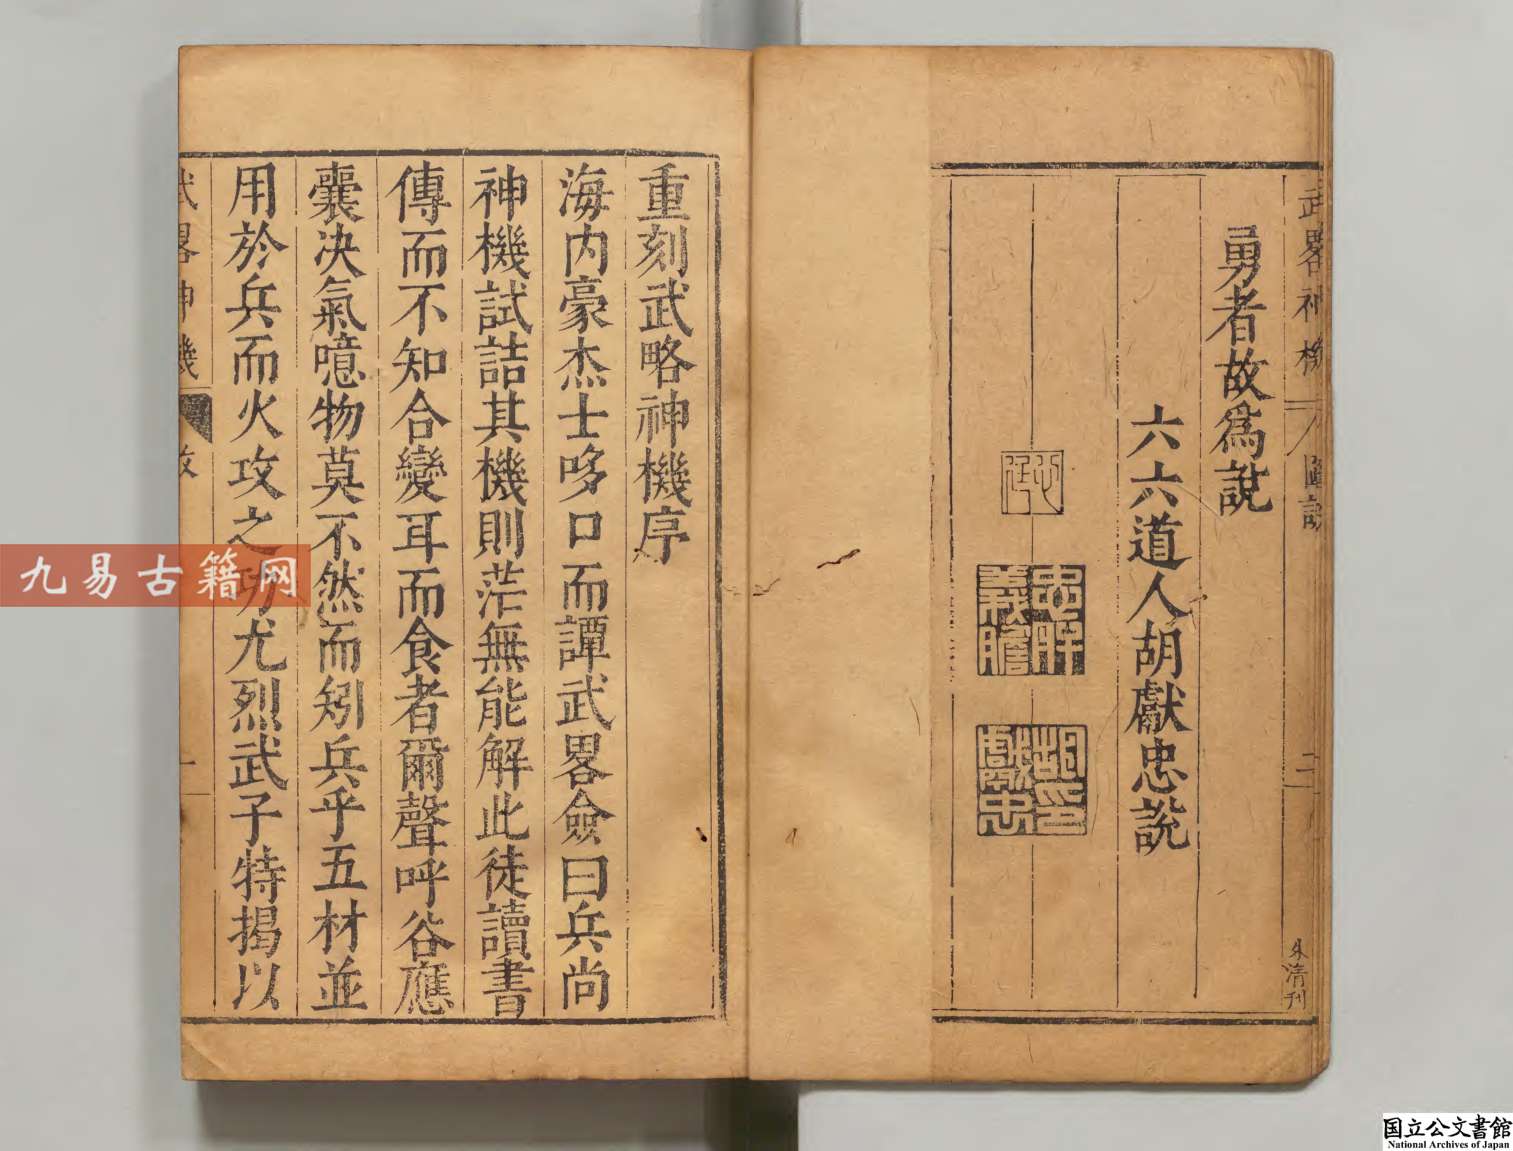 勇者故爲說
六六道人胡獻忠說
忠肝
義膽
胡印
獻忠
朱清刊
重刻武略神機序
海内豪杰士哆口而譚武畧僉曰兵尚
神機試詰其機則茫無能解此徒讀書
傳而不知合變耳而食者爾聲呼谷應
囊決氣噫物莫不然而矧兵乎五材並
用於兵而火攻之功尤烈武子特揭以
武畧神機
九易古籍网
国立公文書館
National Archives of Japan